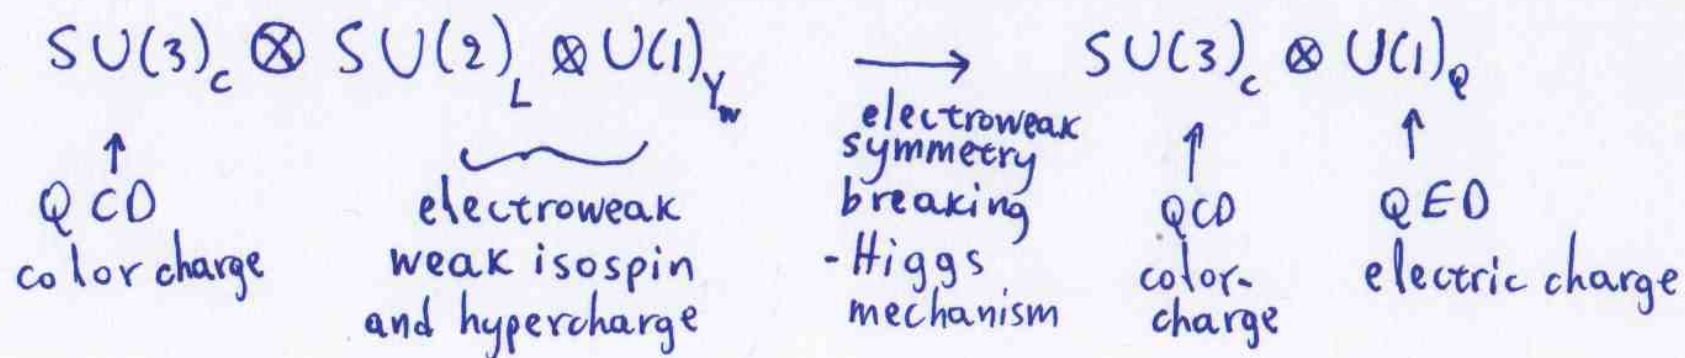 SU(3)_c ⊗ SU(2)_L ⊗ U(1)_{Y_w} ⟶ SU(3)_c ⊗ U(1)_Q
↑
QCD
color charge
electroweak
weak isospin
and hypercharge
electroweak
symmetry
breaking
- Higgs
mechanism
↑
QCD
color-
charge
↑
QED
electric charge